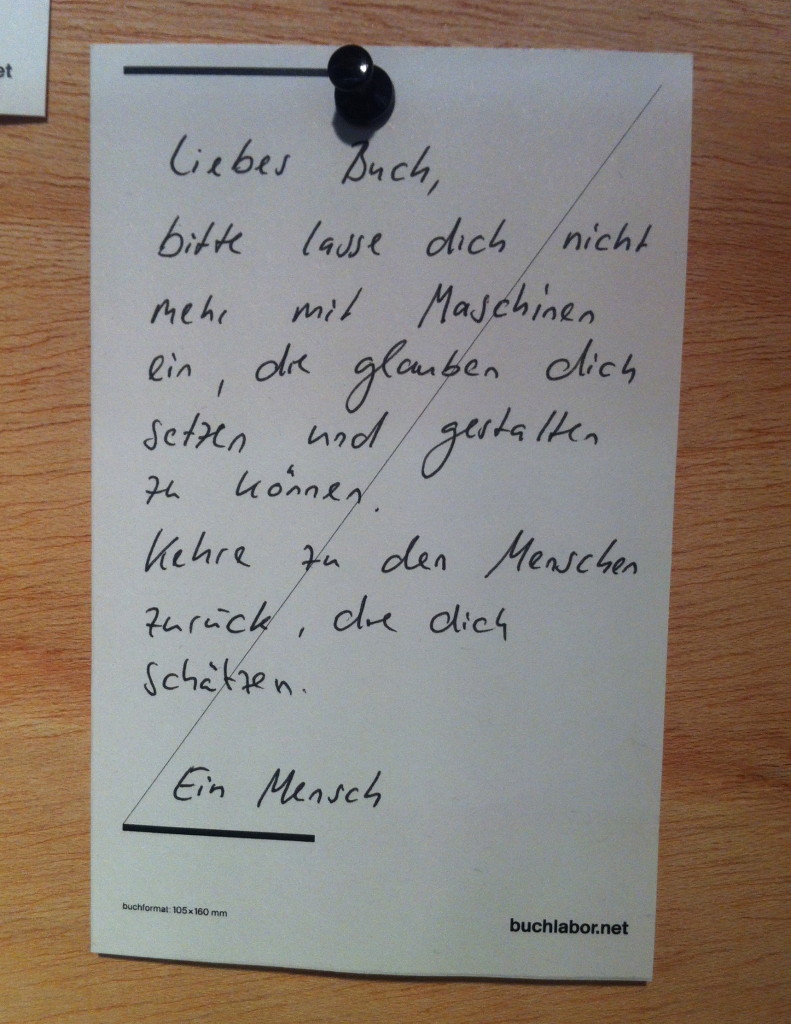 et
Liebes Buch,
bitte lasse dich nicht
mehr mit Maschinen
ein, die glauben dich
setzen und gestalten
zu können.
Kehre zu den Menschen
zurück, die dich
schätzen.
Ein Mensch
buchformat: 105×160 mm
buchlabor.net